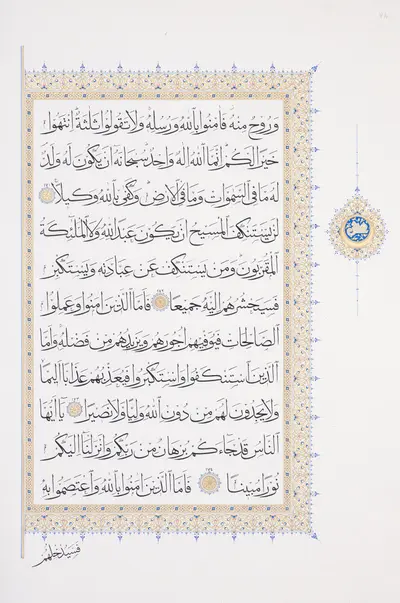 وَرُوحٌ مِنهُ فَآمِنُوا بِاللّٰهِ وَرُسُلِهِ وَلا تَقُولُوا ثَلٰثَةٌ اِنتَهُوا
خَيرًا لَكُم اِنَّمَا اللّٰهُ اِلٰهٌ واحِدٌ سُبحانَهُ اَن يَكُونَ لَهُ وَلَدٌ
لَهُ ما فِي السَّمٰواتِ وَما فِي الاَرضِ وَكَفىٰ بِاللّٰهِ وَكيلًا
لَن يَستَنكِفَ المَسيحُ اَن يَكُونَ عَبدًا لِلّٰهِ وَلَا المَلٰئِكَةُ
المُقَرَّبُونَ وَمَن يَستَنكِف عَن عِبادَتِهِ وَيَستَكبِر
فَسَيَحشُرُهُم اِلَيهِ جَميعًا فَاَمَّا الَّذينَ آمَنُوا وَعَمِلُوا
الصّالِحاتِ فَيُوَفّيهِم اُجُورَهُم وَيَزيدُهُم مِن فَضلِهِ وَاَمَّا
الَّذينَ استَنكَفُوا وَاستَكبَرُوا فَيُعَذِّبُهُم عَذابًا اَليمًا
وَلا يَجِدُونَ لَهُم مِن دُونِ اللّٰهِ وَلِيًّا وَلا نَصيرًا يا اَيُّهَا
النّاسُ قَد جاءَكُم بُرهانٌ مِن رَبِّكُم وَاَنزَلنا اِلَيكُم
نُورًا مُبينًا فَاَمَّا الَّذينَ آمَنُوا بِاللّٰهِ وَاعتَصَمُوا بِهِ
فَسَيُدخِلُهُم